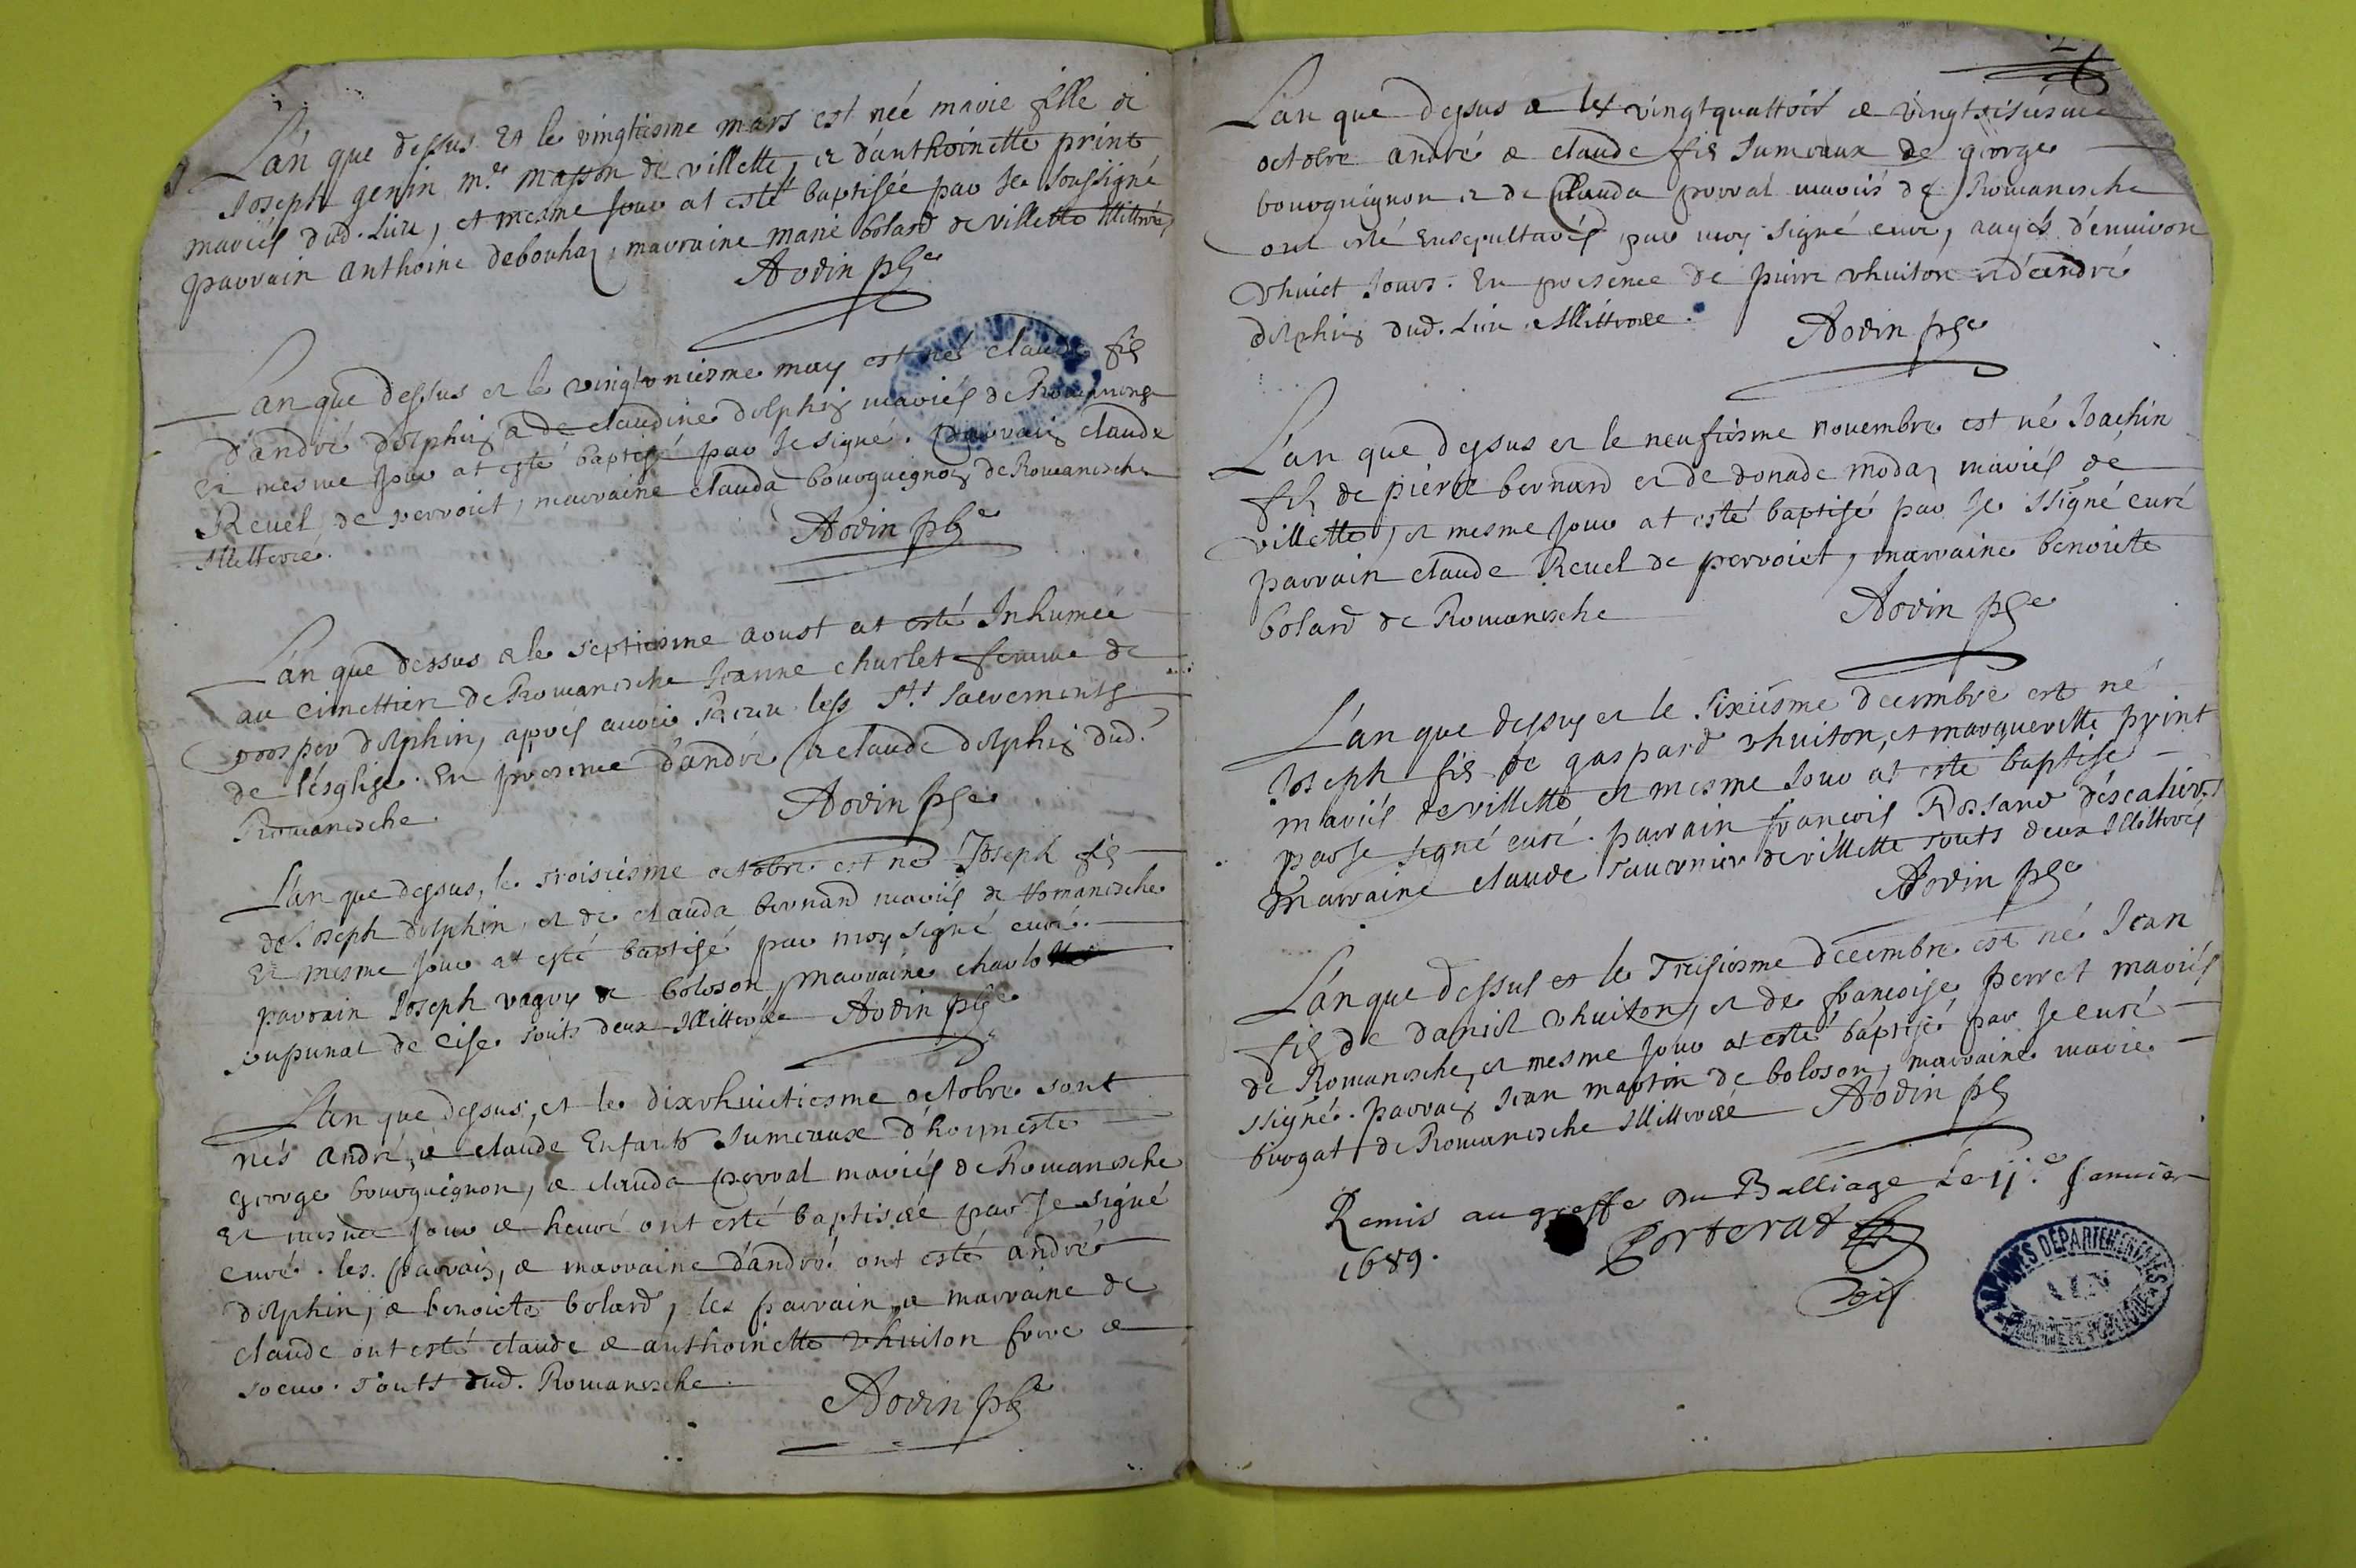 L'an que dessus Et le vingtiesme mars est née marie fille de
Joseph genin m.e masson de villette, et d'anthoinette print
mariés dud. Lieu, et mesme jour at esté baptisée par Je soussigné
parrain anthoine debouhaz, marraine marie bolard de villette Illittrés
Aodin pbre
L'an que dessus et le vingtvniesme may est né claude fils
d'andré dolphin & de claudine dolphin mariés de Romaneche
Et mesme jour at esté baptisé par Je signé. parrain claude
Revel de pervoiet, marraine clauda bourguegnon de Romanesche
Illitteré.
Aodin pbre
L'an que dessus & le septiesme aoust at esté Inhumée
au cimettiere de Romanesche Jeanne churlet femme de
prosper dolphin, apprés auoir Receu less Sts sacrements
de l'ésglise. En presence d'andré & claude dolphin dud.
Romanesche
Aodin pbre
L'an que dessus, le troisiesme octobre est né Joseph fils
de Joseph dolphin, et de clauda bernard mariés de Romanesche
Et mesme jour at esté baptisé par moy signé curé.
parrain Joseph vaguy de boloson, marraine charlotte
jupunat de Cise touts deux Illitteré Aodin pbre
L'an que dessus, et le dixvhuictiesme octobre sont
nés andré, & claude Enfants Jumeaux d'hoyneste
george bourguignon, & clauda perval mariés de Romanesche
Et mesme jour & heure ont esté baptisée par Je signé
curé. les parrain, & marraine d'andré ont esté andré
dolphin, & benoicte bolard, les parrain & marraine de
claude ont esté claude & anthoinette vhuiton frere &
soeur. touts dud. Romanesche
Aodin pbre
L'an que dessus & les vingtquattreie & vingtsisiesme
octobre andré & claude fils Jumeaux de george
bourguignon et de clauda perval mariés de Romanesche
ont esté Ensepultarés par moy signé curé, aagés d'enuiron
vhuict jours. En presence de pierre vhuiton et d'andré
dolphin dud. Lieu Illitteré.
Aodin pbre
L'an que dessus et le neufiesme nouembre est né Joachin
fils de pierre bernard et de donade modaz mariés de
villette, et mesme jour at esté baptisé par Je ssigné curé
parrain claude Revel de pervoiet, marraine benoiste
bolard de Romanesche
Aodin pbre
L'an que dessus et le sixiésme decembre est né
Joseph fils de gaspard vhuiton, et marguerite print
mariés de villette et mesme jour at esté baptisé
par Je signé curé. parrain francois Rossand d'éscalier
marraine claude saurnier de villette touts deux Illittrés
Aodin pbre
L'an que dessus et le Treisiesme decembre est né Jean
fils de daniel vhuiton, et de francoise perret mariés
de Romanesche, et mesme jour at esté baptisé par Je curé
ssigné. parrain Jean martin de boloson, marraine marie
buogat de Romanesche Illitteré Aodin pb
Remis au greffe du Balliage Le 11.e Januier
1689.
Corterat